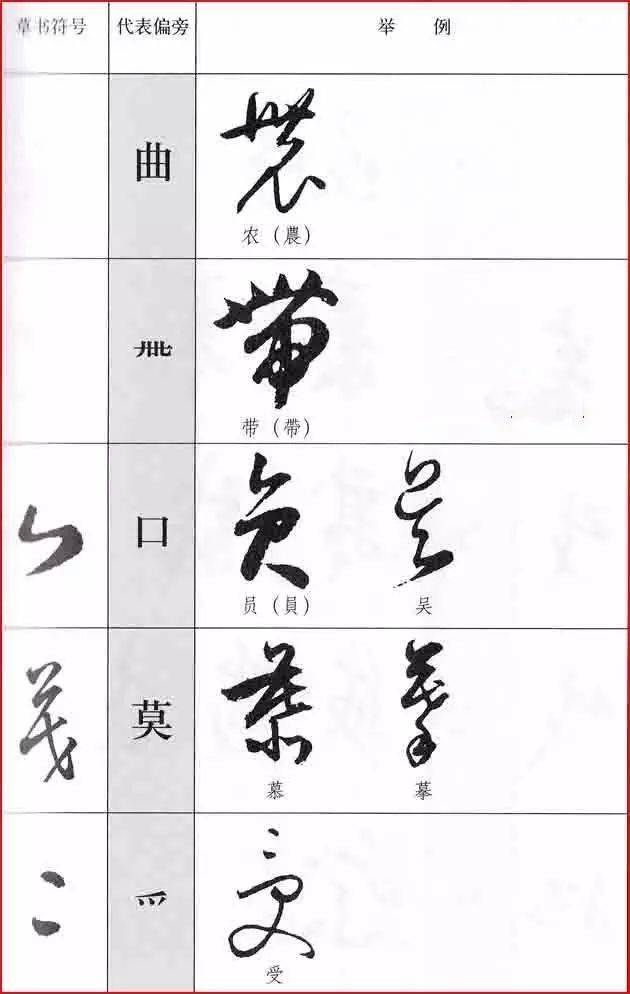 草书符号 代表偏旁 举例
曲
农（農）
带（帶）
口
员（員） 吴
莫
慕 摹
爫
受